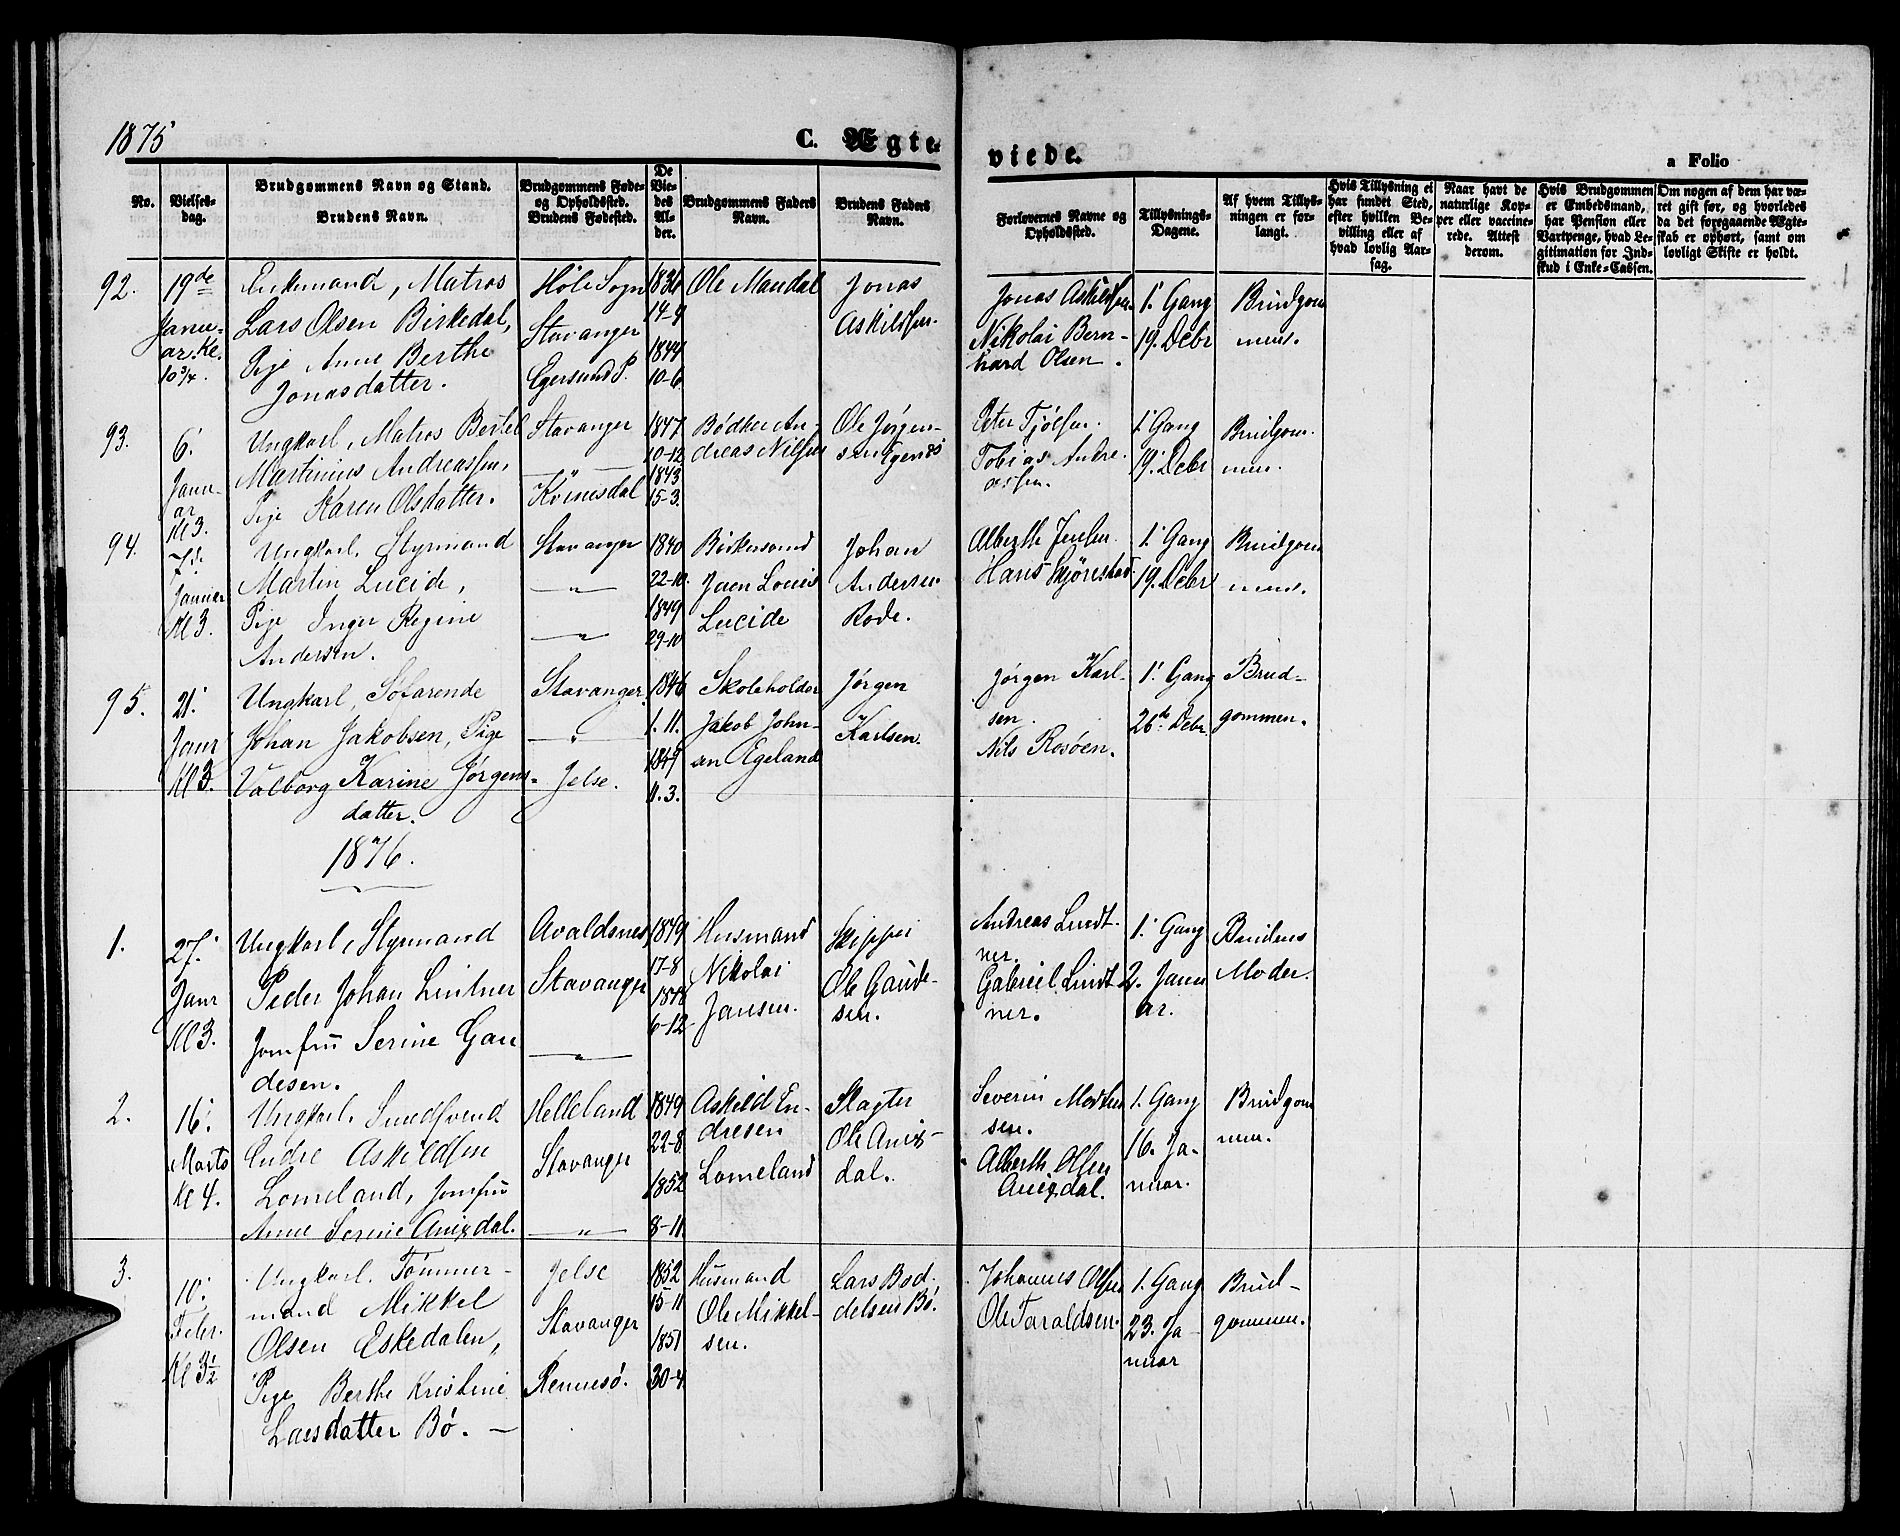 1875
C. Ægte
viede.
a Folio
No.
Vielses-
dag.
Brudgommens Navn og Stand.
Brudens Navn.
Brudgommens Føde-
og Opholdssted.
Brudens Fødested.
De
Vie-
des
Al-
der.
Brudgommens Faders
Navn.
Brudens Faders
Navn.
Forlovernes Navne og
Opholdssted.
Tillysnings-
Dagene.
Af hvem Tillys-
ningen er for-
langt.
Hvis Tillysning ei
har fundet Sted,
efter hvilken Be-
villing eller af
hvad lovlig Aar-
sag.
Naar havt de
naturlige Kop-
per eller vaccine-
rede. Attest
derom.
Hvis Brudgommen
er Embedsmand,
har Pension eller
Vartpenge, hvad Le-
gitimation for Ind-
skud i Enke-Cassen.
Om nogen af dem har væ-
ret gift før, og hvorledes
da det foregaaende Ægte-
skab er ophørt, samt om
lovligt Skifte er holdt.
92.
19de
Janu-
ar. Kl.
10 3/4.
Enkemand, Matros
Lars Olsen Birkedal,
Pige Anne Berthe
Jonasdatter.
Høle Sogn
Stavanger
Egersund P.
1836
14-9
1844
10-6
Ole Maudal
Jonas
Askildsen.
Jonas Askildsen.
Nikolai Bern-
hard Olsen.
1. Gang
19. Debr
Brudgom
men.
93.
6.
Janu-
ar
Kl 3.
Ungkarl, Matros Bertel
Martinius Andreassen,
Pige Karen Olsdatter.
Stavanger
— " —
Kvinesdal
1847
10-12
1843
15-3.
Bødker An-
dreas Nilsen
Ole Jørgen-
sen
Peter Tjølsen.
Tobias Andre-
assen.
1. Gang
19. Debr
Brudgom
men.
94.
7de
Januar
Kl 3.
Ungkarl, Styrmand
Martin Lucide,
Pige Inger Regine
Andersen.
Stavanger
— " —
— " —
1840
22-10
1849
29-10
Jaen Louis
Lucide
Johan
Andersen
Rode.
Alberth Jensen
Hans Skjørestad
1. Gang
19. Debr
Brudgom
men.
95.
21.
Janr
Kl 3.
Ungkarl, Søfarende
Johan Jakobsen, Pige
Valborg Karine Jørgens-
datter.
Stavanger
— " —
Jelse.
1846
1. 11.
1849
11. 3.
Skoleholder
Jakob John-
sen Egeland
Jørgen
Karlsen.
Jørgen Karl-
sen.
Nils Rosøen.
1. Gang
26de Debr
Brud-
gommen.
1876.
1.
27.
Janr
Kl 3.
Ungkarl, Styrmand
Peder Johan Lintner
Jomfru Serine Gau
desen.
Avaldsnes
Stavanger
— " —
1849
17-8
1848
6-12
Husmand
Nikolai
Jansen.
Skipper
Ole Gaude-
sen.
Andreas Lindt-
ner.
Gabriel Lindt
ner.
1. Gang
2. Janu
ar.
Brudens
Moder.
2.
16.
Marts
Kl 4.
Ungkarl, Smedsvend
Endre Askildsen
Lomeland, Jomfru
Anne Serine Auigdal.
Helleland
Stavanger
— " —
1849
22-8
1852
8-11
Askild En-
dresen
Lomeland
Slagter
Ole Auig-
dal.
Severin Mathias
sen.
Alberth Olsen
Auigdal.
1. Gang
16. Ja-
nuar.
Brudgom
men.
3.
10.
Febr.
Kl 3 1/2
Ungkarl, Tømmer-
mand Mikkel
Olsen Eskedalen,
Pige Berthe Kristine
Larsdatter Bø. —
Jelse
Stavanger
Rennesø.
1852
15-11
1851
30-4
Husmand
Ole Mikkel-
sen.
Lars Bod-
delsen Bø.
Johannes Olsen
Ole Taraldsen.
1. Gang
23. Ja-
nuar
Brud-
gommen.